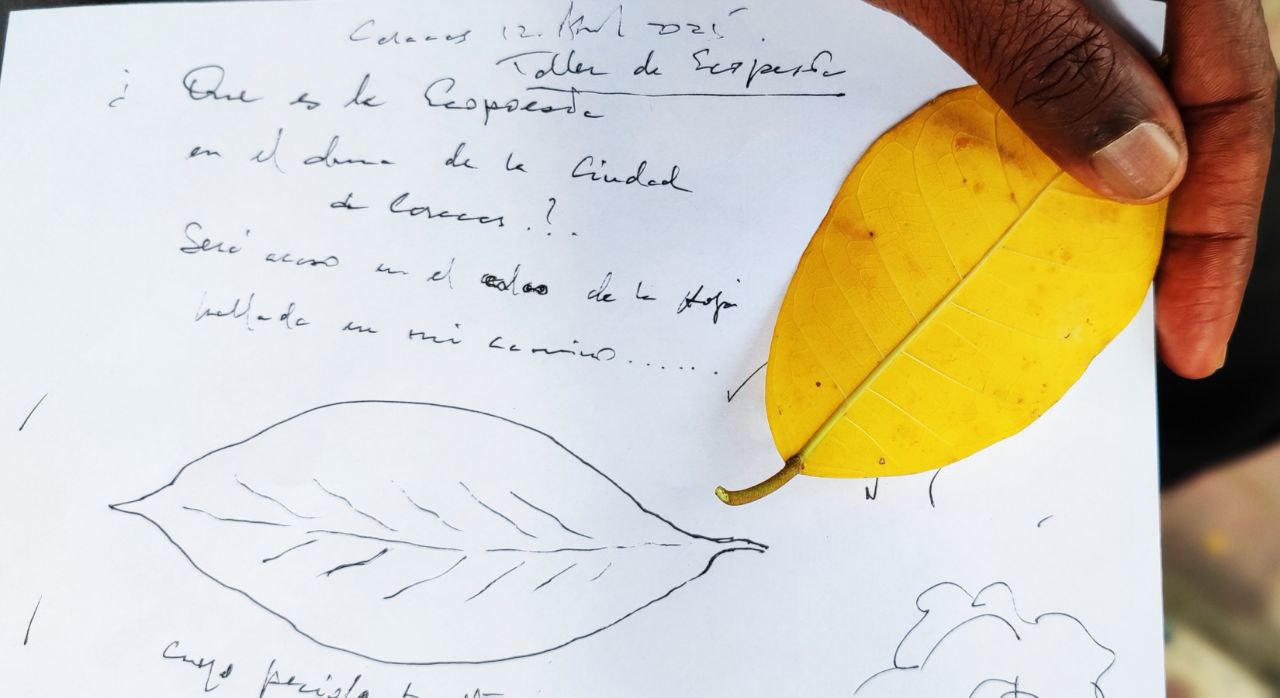 Caracas 12. Abril 2025.
Taller de Ecopoesía
¿ Que es la Ecopoesía
en el drama de la Ciudad
de Caracas.?..
Será acaso en el de la Hoja
hallada en mi camino......
cuyo